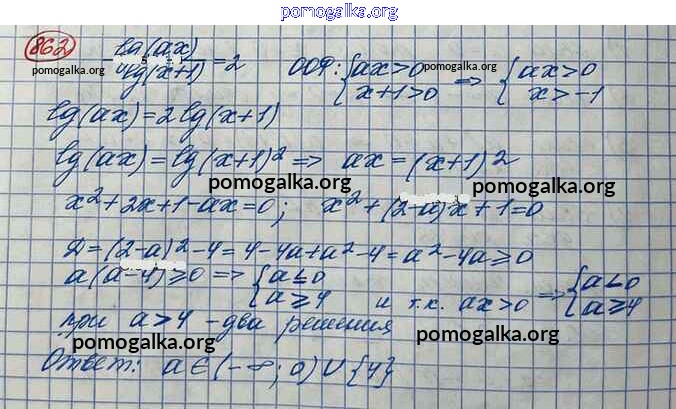 pomogalka.org
862 lg(ax) / lg(x+1) = 2 ООФ: { ax>0 x+1>0 => { ax>0 x>-1
pomogalka.org pomogalka.org
lg(ax)=2lg(x+1)
lg(ax)=lg(x+1)² => ax=(x+1)²
pomogalka.org pomogalka.org
x²+2x+1-ax=0; x²+(2-a)x+1=0
Д=(2-a)²-4=4-4a+a²-4=a²-4a≥0
a(a-4)≥0 => { a≤0 a≥4 и т.к. ax>0 => { a<0 a≥4
при a>4 - два решения
pomogalka.org pomogalka.org
Ответ: a∈(-∞;0)∪{4}